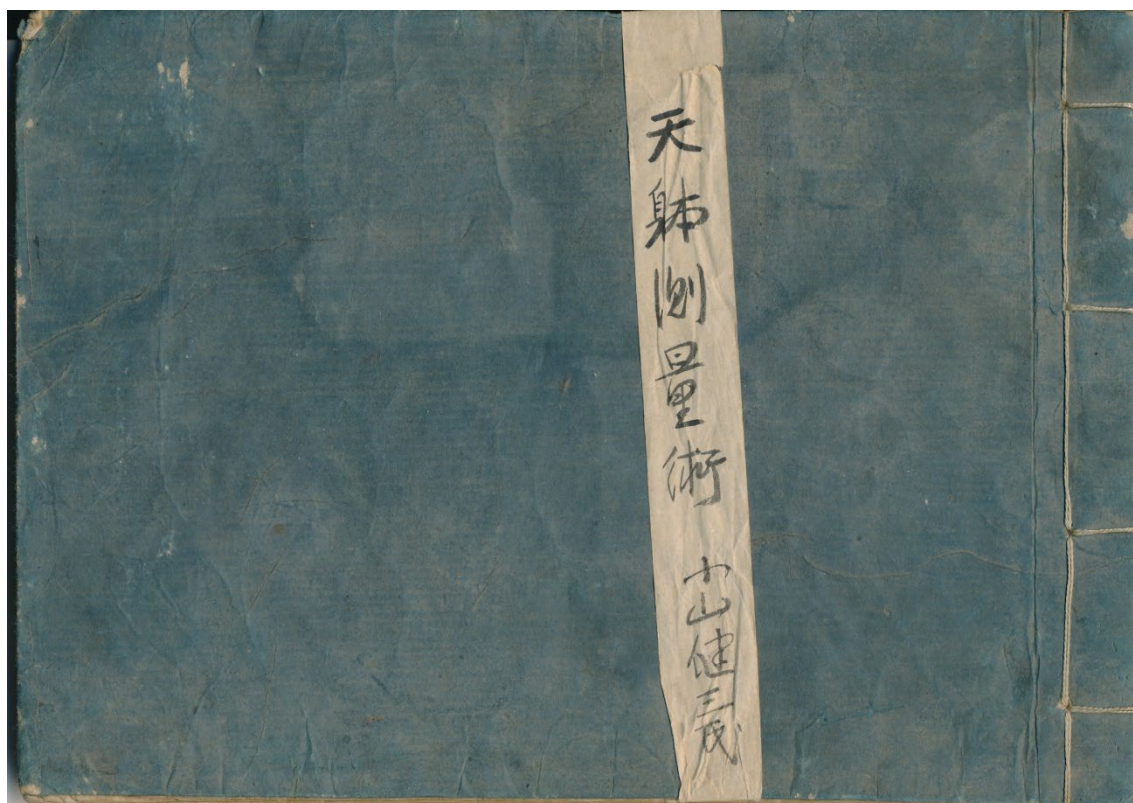 天躰測量術 小山健三